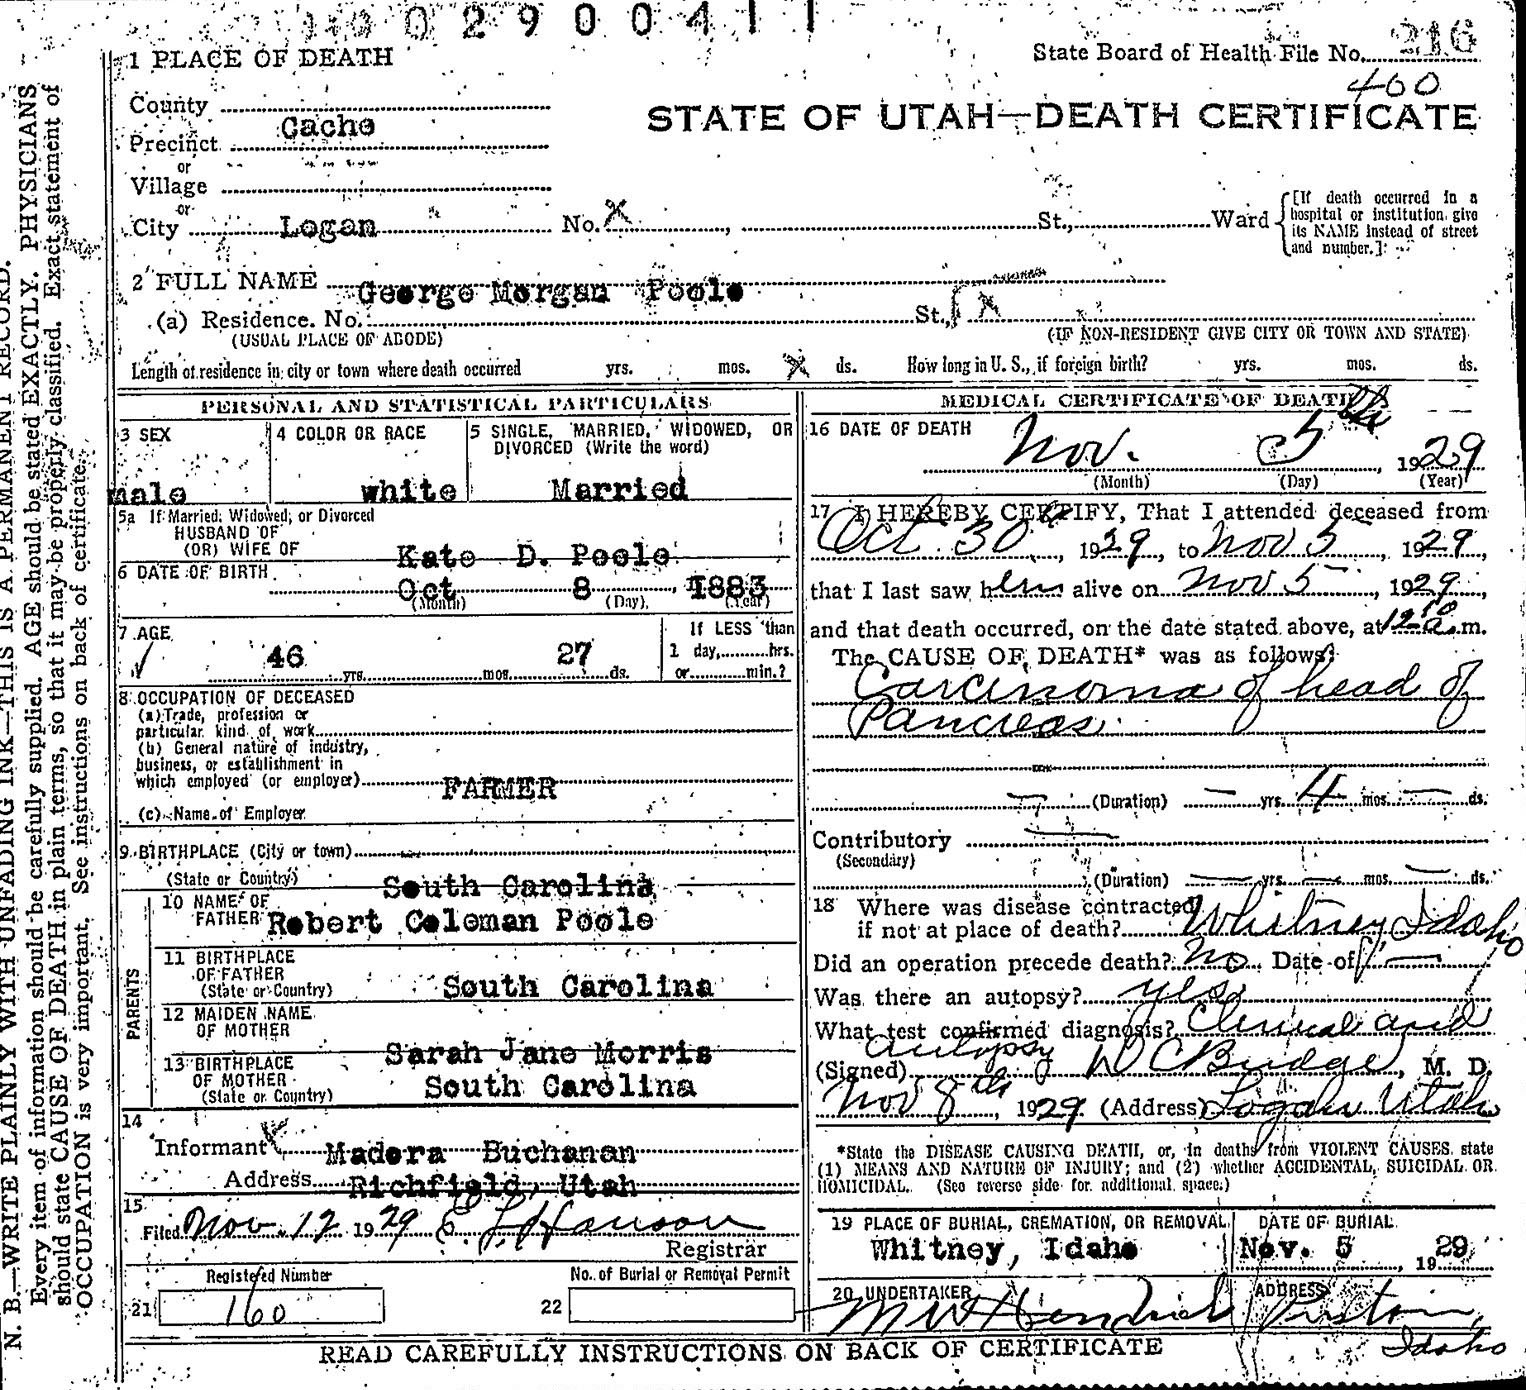 0 0 2 9 0 0 4 1 1
1 PLACE OF DEATH
State Board of Health File No. 216
400
STATE OF UTAH—DEATH CERTIFICATE
County
Cache
Precinct
or
Village
or
City Logan No. X , St., Ward
[If death occurred in a hospital or institution give its NAME instead of street and number.]
2 FULL NAME George Morgan Poole
(a) Residence. No. St., X
(USUAL PLACE OF ABODE) (IF NON-RESIDENT GIVE CITY OR TOWN AND STATE)
Length of residence in city or town where death occurred yrs. mos. X ds. How long in U. S., if foreign birth? yrs. mos. ds.
PERSONAL AND STATISTICAL PARTICULARS
3 SEX
male
4 COLOR OR RACE
white
5 SINGLE, MARRIED, WIDOWED, OR DIVORCED (Write the word)
Married
5a If Married, Widowed, or Divorced
HUSBAND OF
(OR) WIFE OF Kate D. Poole
6 DATE OF BIRTH Oct 8, 1883
(Month) (Day) (Year)
7 AGE
46 yrs. mos. 27 ds.
If LESS than
1 day, hrs.
or min.?
8 OCCUPATION OF DECEASED
(a) Trade, profession or
particular kind of work
(b) General nature of industry,
business, or establishment in
which employed (or employer) FARMER
(c) Name of Employer
9 BIRTHPLACE (City or town)
(State or Country) South Carolina
PARENTS
10 NAME OF
FATHER Robert Coleman Poole
11 BIRTHPLACE
OF FATHER
(State or Country) South Carolina
12 MAIDEN NAME
OF MOTHER
Sarah Jane Morris
13 BIRTHPLACE
OF MOTHER
(State or Country) South Carolina
14
Informant Madera Buchanan
Address Richfield, Utah
15
Filed Nov. 12 1929 E. L. Hanson
Registrar
Registered Number
21 160
No. of Burial or Removal Permit
22
MEDICAL CERTIFICATE OF DEATH
16 DATE OF DEATH
Nov. 5th, 1929
(Month) (Day) (Year)
17 I HEREBY CERTIFY, That I attended deceased from
Oct 30, 1929, to Nov 5, 1929,
that I last saw him alive on Nov 5, 1929,
and that death occurred, on the date stated above, at 12 10 a.m.
The CAUSE OF DEATH* was as follows:
Carcinoma of head of
Pancreas
(Duration) — yrs. 4 mos. — ds.
Contributory —
(Secondary)
(Duration) — yrs. — mos. — ds.
18 Where was disease contracted
if not at place of death? Whitney, Idaho
Did an operation precede death? No Date of —
Was there an autopsy? yes
What test confirmed diagnosis? Clinical and
autopsy
(Signed) D C Budge, M. D.
Nov 8th, 1929. (Address) Logan Utah
*State the DISEASE CAUSING DEATH, or, in deaths from VIOLENT CAUSES, state
(1) MEANS AND NATURE OF INJURY; and (2) whether ACCIDENTAL, SUICIDAL OR
HOMICIDAL. (See reverse side for additional space.)
19 PLACE OF BURIAL, CREMATION, OR REMOVAL
Whitney, Idaho
DATE OF BURIAL
Nov. 5, 1929
20 UNDERTAKER
M W Hendricks
ADDRESS
Preston,
Idaho
READ CAREFULLY INSTRUCTIONS ON BACK OF CERTIFICATE
N. B.—WRITE PLAINLY WITH UNFADING INK—THIS IS A PERMANENT RECORD.
Every item of information should be carefully supplied. AGE should be stated EXACTLY. PHYSICIANS
should state CAUSE OF DEATH in plain terms, so that it may be properly classified. Exact statement of
OCCUPATION is very important. See instructions on back of certificate.